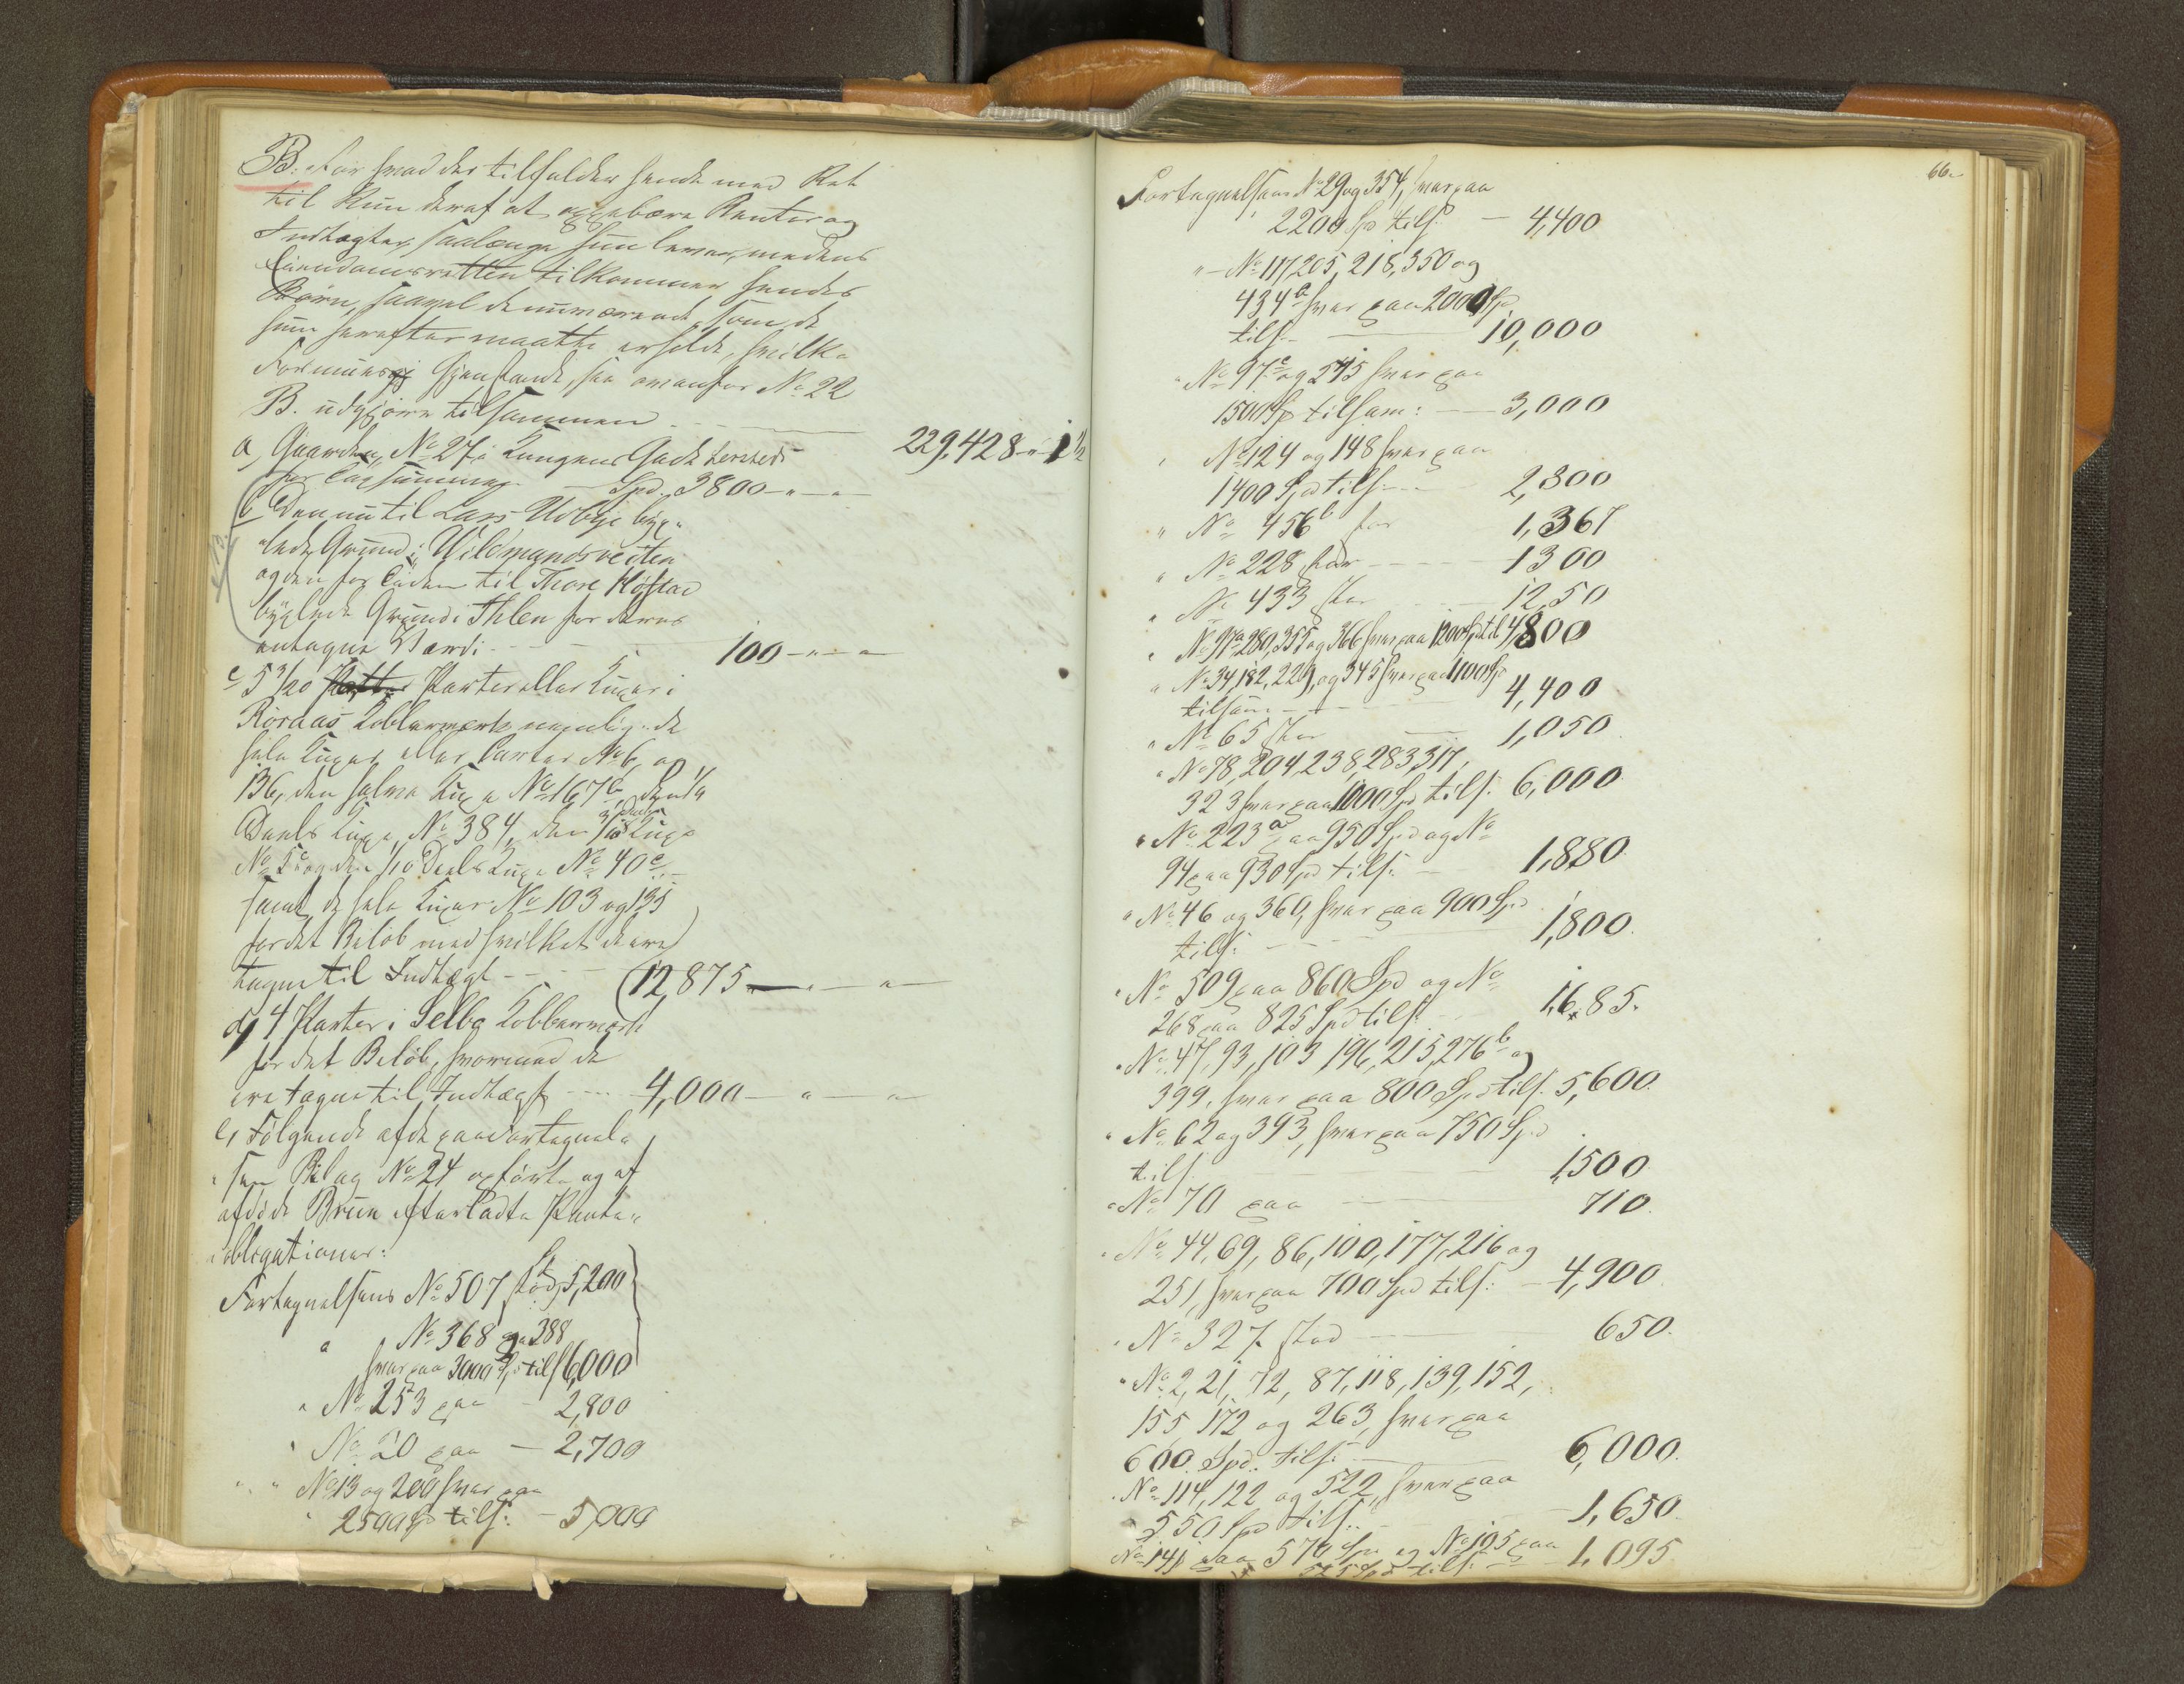 B. For hvad der tilfalder hende med Ret
til kun deraf at oppebære Renter og
Indtægter, saalænge hun lever, medens
Eiendomsretten tilkommer hendes
Børn, saavel de nuværende, som de
hun herefter maatte erholde, hvilke
Formues Gjenstande, see ovenfor No 22
B. udgjøre tilsammen 229,428 - " - 1 1/2
a, Gaarden, No 27 i Kongens Gade
for Taxsummen Spd. 3800 - " - "
b Den nu til Lars Udbye byg-
lede Grund i Wildmandsveiten
og den for Tiden til Thore Høstad
byglede Grund i Ihlen for deres
antagne Værdi 100 - " - "
c 5 3/20 Parter eller Kuxer i
Röraas Kobberværk nemlig: de
hele Kuxer eller Parter No 6, og
136, den halve Kuxe No 167 b, den 1/4
Deels Kuxe, No 384, den 3/10 Deels Kuxe
No 5 c og den 1/10 Deels Kuxe No 40 e
samt de hele Kuxer No 103 og 135
for det Beløb med hvilket de ere
tagne til Indtægt 12,875 - " - "
d, 4 Parter i Selbo Kobberværk
for det Beløb, hvormed de
ere tagne til Indtægt 4,000 - " - "
e, Følgende af de paa Fortegnel-
sen Bilag No 24 opførte og af
afdøde Bruun efterladte Pante-
obligationer:
Fortegnelsens No 507 stor 5,200
" No 368 og 288
hver paa 3000 Sp tils 6,000
" No 253 paa - 2,800
" No 20 paa - 2,700
" " No 13 og 200 hver paa
" 2500 Sp tils: - 5,000
66.
Fortegnelsens No 29 og 354, hver paa
2200 Sp tils: - 4,400
" - No 117, 205, 218, 350 og
434 a hver paa 2000 Sp
tils - 10,000
" No 97 c og 245 hver paa
1500 Sp tilsam: - 3,000
" No 124 og 148 hver paa
1400 Spd tils: - 2,800
" No 456 b stor 1,367
" No 228 stor - 1300
" No 433 stor - 1250
" No 97 a 280, 355 og 366 hver paa 1200 Sp til 4,800
" No 34, 182, 229, og 345 hver paa 1100 Sp
tilsam: - 4,400
" No 65 stor - 1,050
" No 78, 204, 238, 283, 317,
323 hver paa 1000 Sp tils: 6,000
" No 223 a paa 950 Spd og No
94 paa 930 Spd tils: - 1,880
" No 46 og 360, hver paa 900 Spd
tils: - 1,800.
" No 509 paa 860 Spd og No
268 paa 825 Spd tils: 1,685.
" No 47, 93, 103 196, 215, 276 b og
399, hver paa 800 Spd tils. 5,600.
" No 62 og 393, hver paa 750 Spd
tils - 1,500
" No 70 paa - 710.
" No 44, 69, 86, 100, 177, 216 og
251, hver paa 700 Spd tils: - 4,900
" No 327 stor - 650.
" No 2, 21, 72, 87, 118, 139, 152,
155, 172 og 263, hver paa
600 Spd. tils: - 6,000.
" No 114, 122 og 522, hver paa
550 Spd tils: - 1,650.
No 141 paa 570 Sp og No 105 paa
525 Spd tils: - 1,095